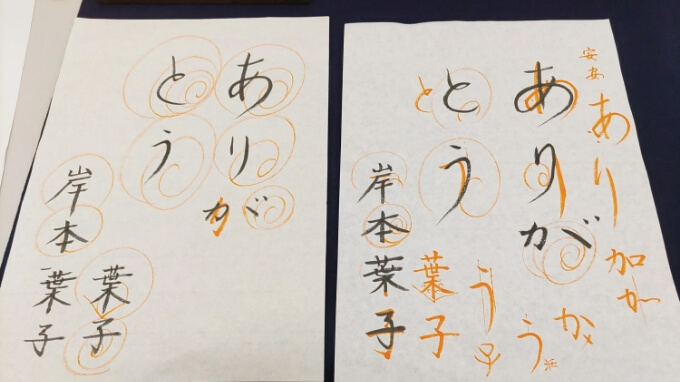 ありが
とう
葉子
岸本葉子
安安
あり
加か
ありが
か
う
とう
と
う
子
葉子
岸本葉子